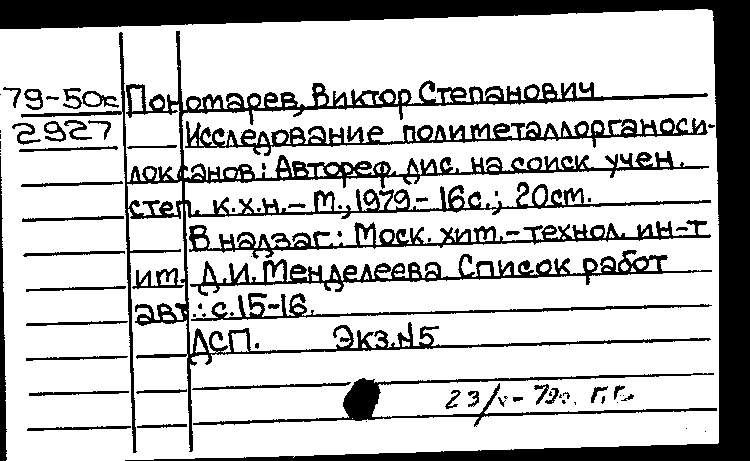 79-50с Пономарев, Виктор Степанович
2927 Исследование полиметаллорганоси-
локсанов: Автореф. дис. на соиск учен.
степ. к.х.н.– М., 1979.– 16с.; 20см.
В надзаг.: Моск. хим.-технол. ин-т
им. Д.И. Менделеева Список работ
авт.: с.15-16.
ДСП. Экз.№5
23/V-79г. Г.Г.